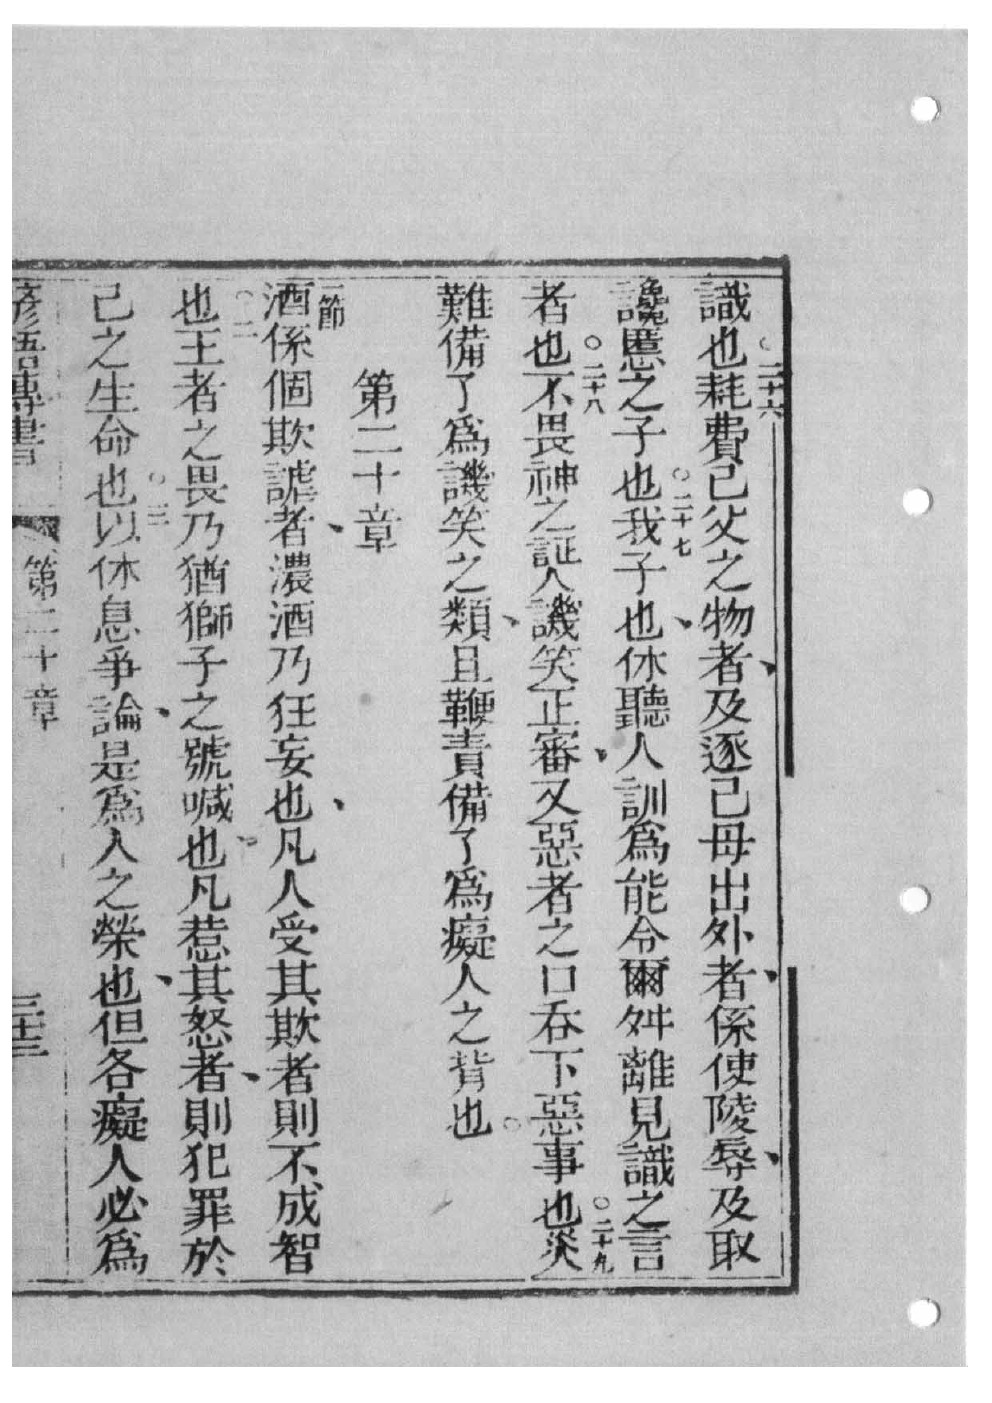 識也○二十六耗費己父之物者、及逐己母出外者、係使陵辱、及取
讒慝之子也○二十七我子也、休聽人訓為能令爾舛離見識之言
者也○二十八不畏神之証人譏笑正審、又惡者之口吞下惡事也○二十九災
難備了為譏笑之類、且鞭責備了為癡人之背也○
第二十章
一節酒係個欺謔者、濃酒乃狂妄也、凡人受其欺者則不成智
也○二王者之畏乃猶獅子之號喊也、凡惹其怒者、則犯罪於
己之生命也○三以休息爭論、是為人之榮也、但各癡人必為
諺語傳書 第二十章 三十三